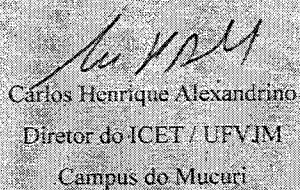 Carlos Henrique Alexandrino
Diretor do ICET / UFVJM
Campus do Mucuri